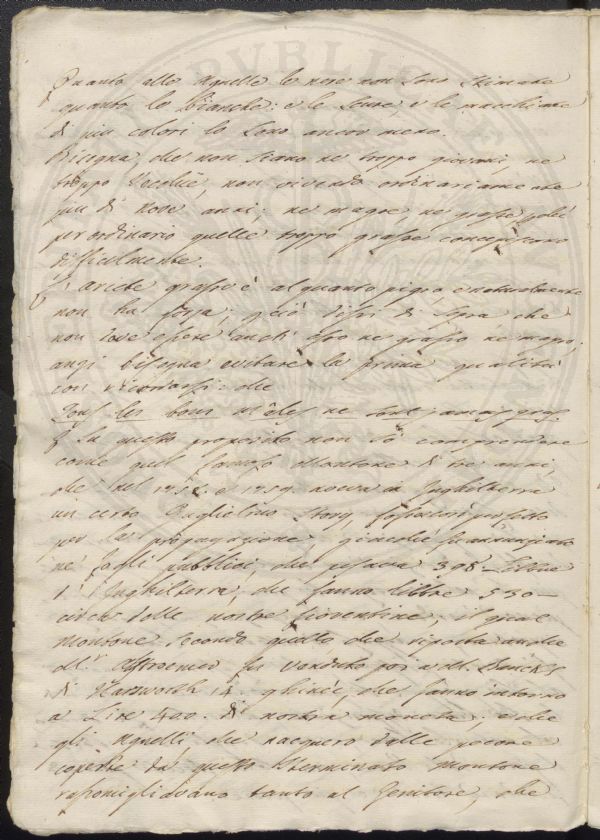 Quanto alle Agnelle le nere non sono stimate
quanto le bianche: e le scure, e le macchiate
di piu colori lo sono ancor meno.
Bisogna che non siano ne troppo giovani, ne
troppo vecchie, non vivendo ordinariamente
piu di Nove anni, ne magre, ne grasse, poichè
per ordinario quelle troppo grasse concepiscono
difficilmente.
L'Ariete grasso è alquanto pigro, e naturalmente
non ha forza, e perciò dissi di sopra che
non dove essere anch' esso ne grasso ne magro,
anzi bisogna evitare la prima qualità
con ricordarsi che
Tous les bons mâles ne sont jamais gras
Su questo proposito non sò comprendere
come quel famoso Montone di tre anni,
che nel 1758 e 1759 aveva in Inghilterra
un certo Guglielmo Story, fosse
per la propagazione, giacchè
ne' fogli pubblici, che pesava 398 Libbre
d' Inghilterra, che fanno libbre 530
circa delle nostre fiorentine; il qual
Montone secondo quello che riporta anche
venduto poi a M. Banks
di Harworth 14. ghinèe, che fanno intorno
a Lire 400. di nostra moneta; e che
gli Agnelli, che nacquero dalle pecore
coperte da questo sterminato Montone
rassomigliavano tanto al Genitore, che